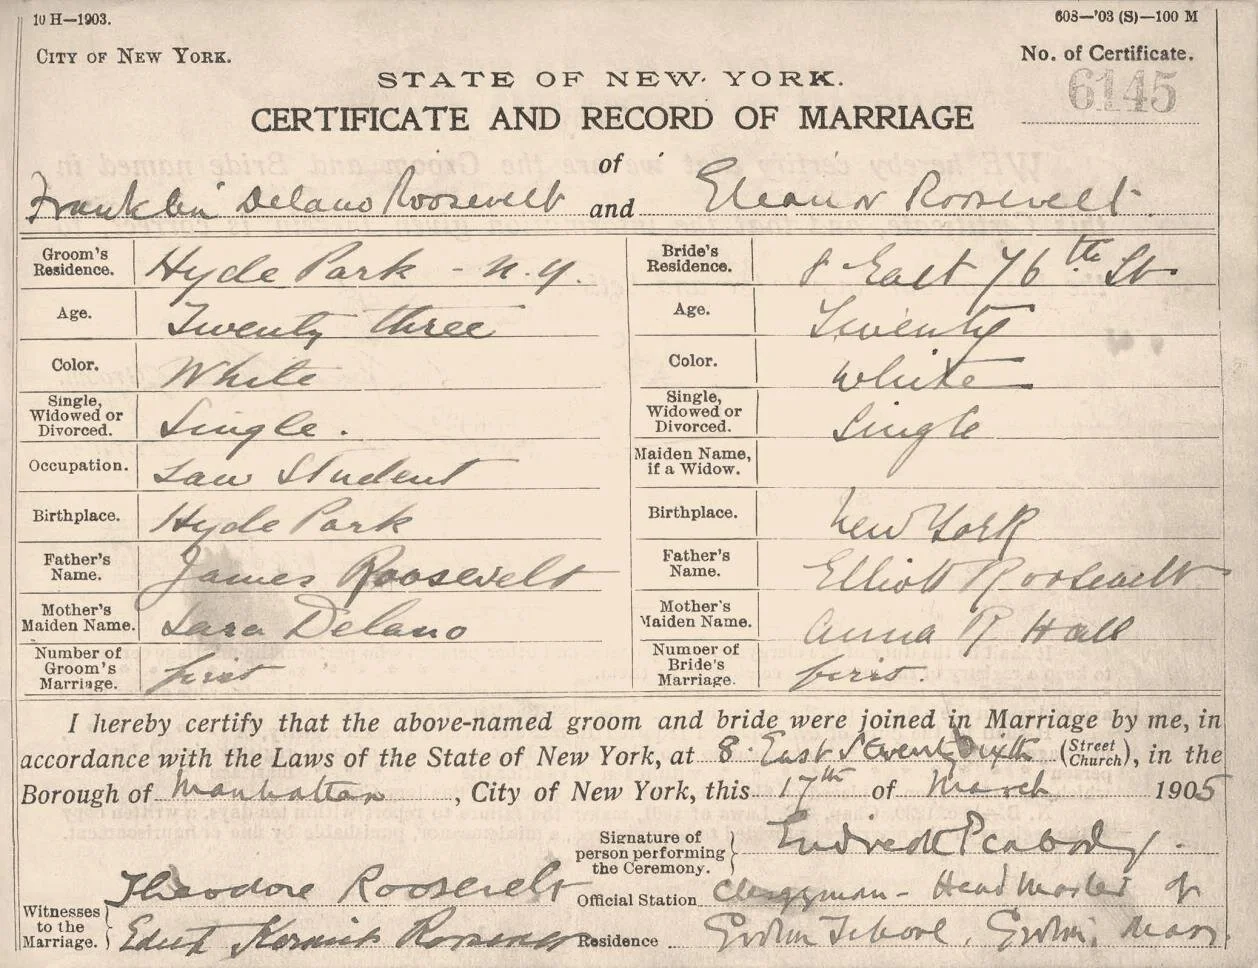 10 H—1903.
608—'03 (S)—100 M
CITY OF NEW YORK.
No. of Certificate.
STATE OF NEW YORK.
6145
CERTIFICATE AND RECORD OF MARRIAGE
of
Franklin Delano Roosevelt and Eleanor Roosevelt.
Groom's Residence. Hyde Park - N.Y.
Bride's Residence. 8 East 76th St
Age. Twenty three
Age. Twenty
Color. White
Color. White
Single, Widowed or Divorced. Single.
Single, Widowed or Divorced. Single
Occupation. Law Student
Maiden Name, if a Widow.
Birthplace. Hyde Park
Birthplace. New York
Father's Name. James Roosevelt
Father's Name. Elliott Roosevelt
Mother's Maiden Name. Sara Delano
Mother's Maiden Name. Anna R Hall
Number of Groom's Marriage. first
Number of Bride's Marriage. first.
I hereby certify that the above-named groom and bride were joined in Marriage by me, in
accordance with the Laws of the State of New York, at 8. East Seventy Sixth (Street Church), in the
Borough of Manhattan, City of New York, this 17th of March 1905
Signature of person performing the Ceremony. Endicott Peabody.
Witnesses to the Marriage. Theodore Roosevelt
Official Station Clergyman - Head Master of
Edith Kermit Roosevelt
Residence Groton School, Groton, Mass.